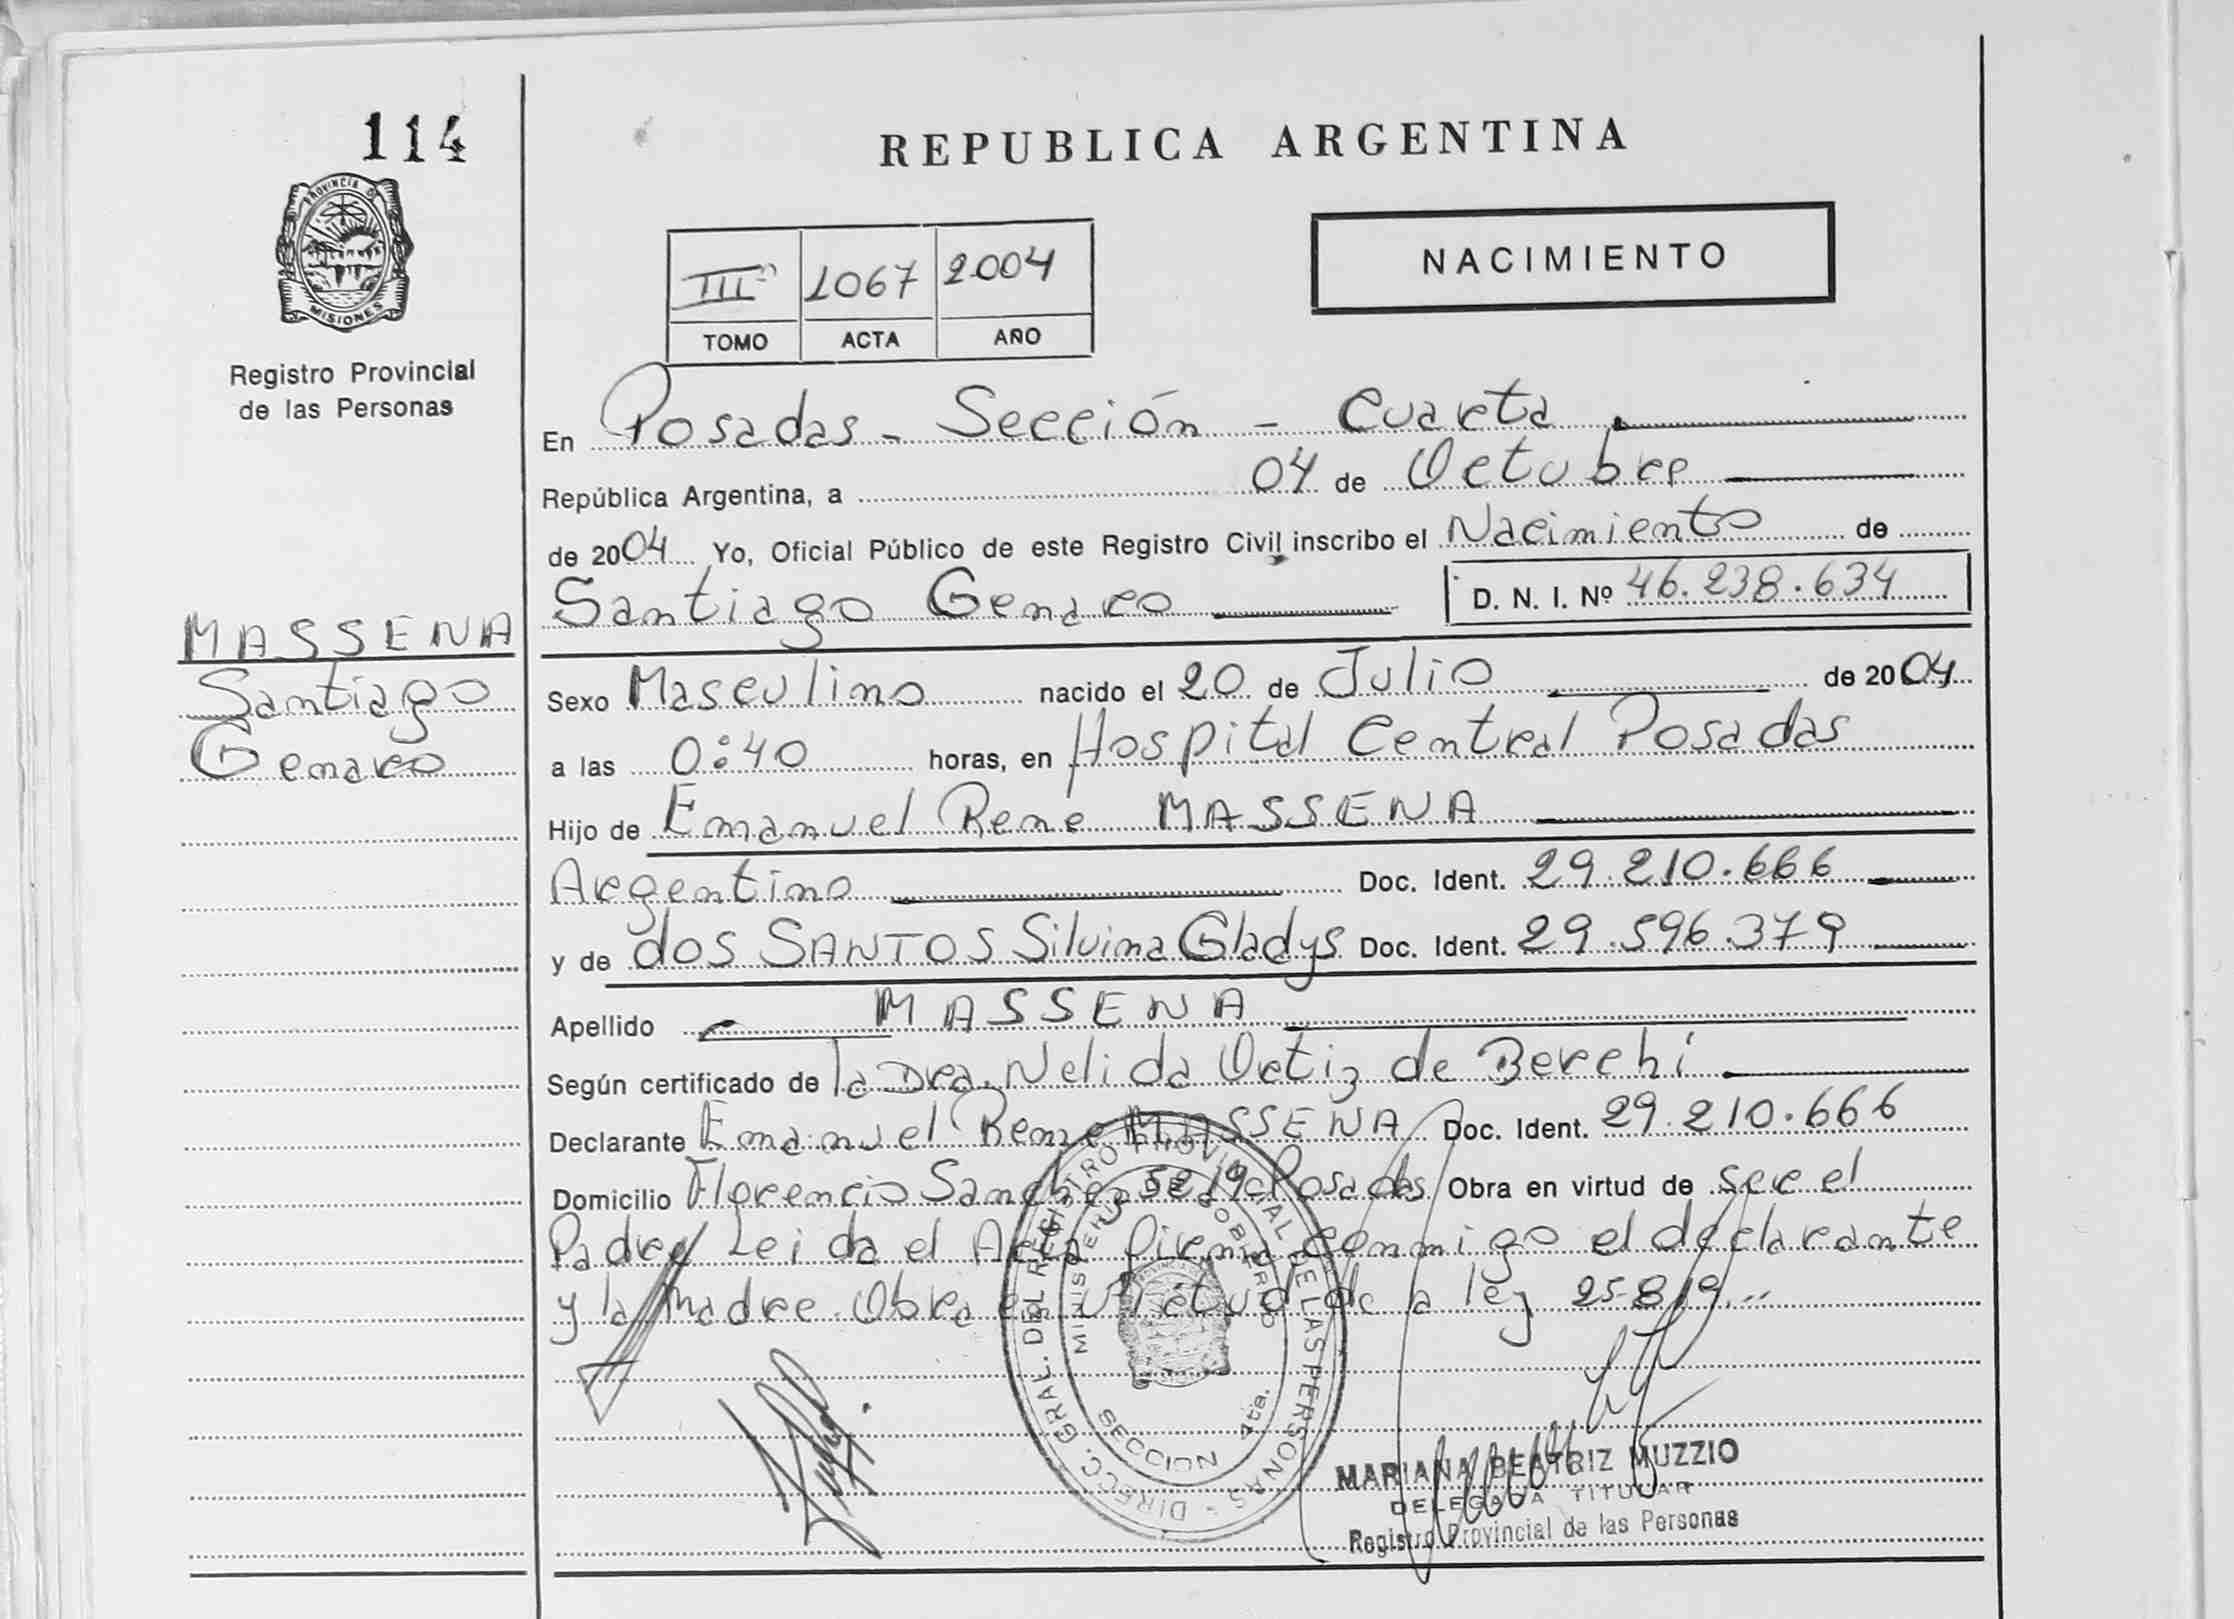 114
PROVINCIA D
MISIONES
Registro Provincial
de las Personas
MASSENA
Santiago
Genaro
REPUBLICA ARGENTINA
NACIMIENTO
III 1067 2004
TOMO ACTA AÑO
En Posadas - Sección - Cuarta
República Argentina, a 04 de Octubre
de 2004 Yo, Oficial Público de este Registro Civil inscribo el Nacimiento de
Santiago Genaro D. N. I. Nº 46.238.634
Sexo Masculino nacido el 20 de Julio de 2004
a las 0:40 horas, en Hospital Central Posadas
Hijo de Emanuel Rene MASSENA
Argentino Doc. Ident. 29.210.666
y de dos SANTOS Silvina Gladys Doc. Ident. 29.596.379
Apellido MASSENA
Según certificado de la Dra. Nelida Ortiz de Berchi
Declarante Emanuel Rene MASSENA Doc. Ident. 29.210.666
Domicilio Florencio Sanchez Posadas Obra en virtud de ser el
Padre Leida el Acta Firma conmigo el declarante
y la Madre. Obra en Virtud de a ley 25.819..
DIRECC. GRAL. DEL REGISTRO PROVINCIAL DE LAS PERSONAS -
MINISTERIO DE GOBIERNO
SECCION 4ta.
MARIANA BEATRIZ MUZZIO
DELEGADA TITULAR
Registro Provincial de las Personas